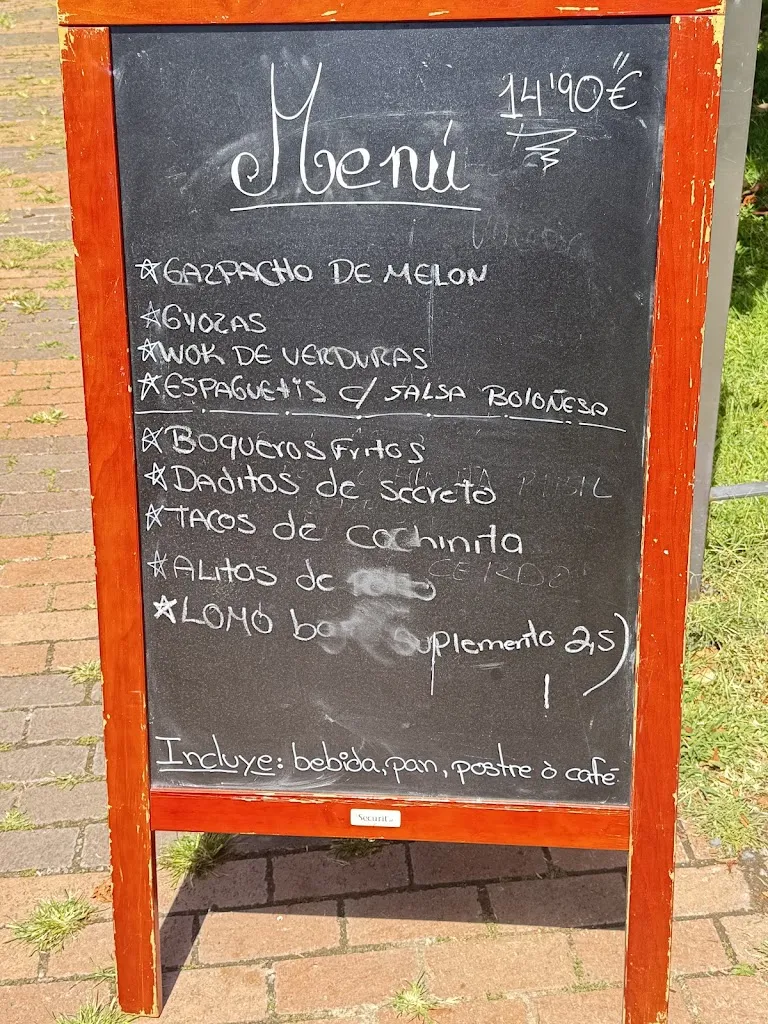 14'90€
Menú
*GAZPACHO DE MELON
*GYOZAS
*WOK DE VERDURAS
*ESPAGUETIS C/ SALSA BOLOÑESA
*BOQUEROS FRITOS
*DADITOS de SECRETO
*TACOS de cochinita
*ALITAS de
*LOMO
SUPLEMENTO 2,5)
Incluye: bebida, pan, postre ò café
Securit